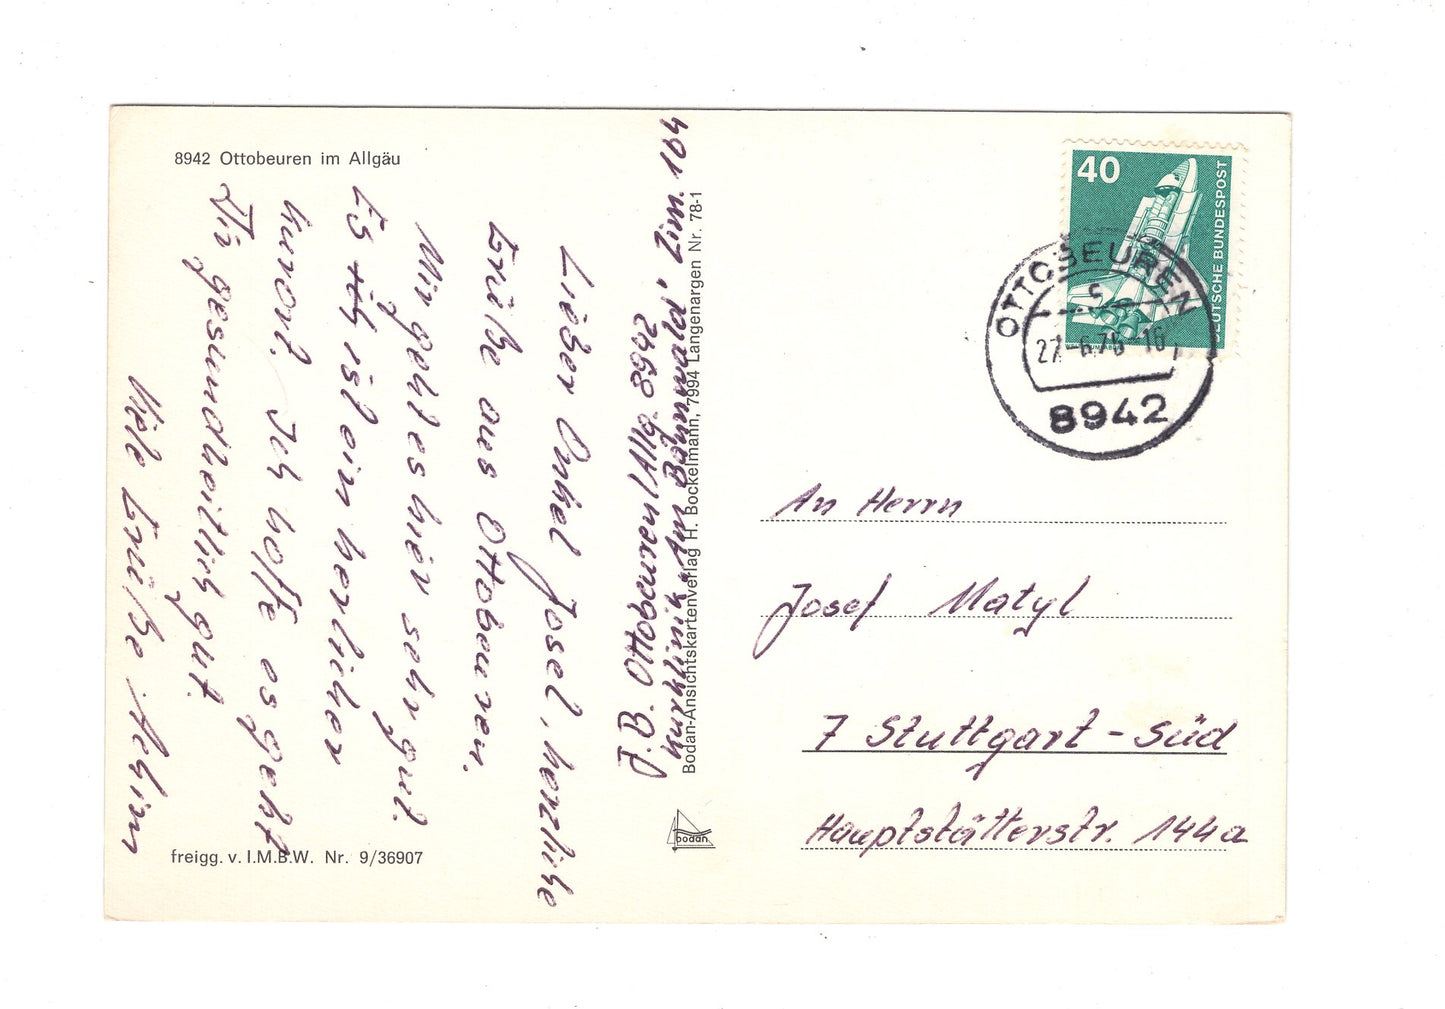 8942 Ottobeuren im Allgäu
Lieber Onkel Josef, herzliche
Grüße aus Ottobeuren.
Mir geht es hier sehr gut.
Es ist ein herlicher
Kurort. Ich hoffe es geht
Dir gesundheitlich gut.
Viele Grüße Achim
freigg. v. I.M.B.W. Nr. 9/36907
J.B. Ottobeuren/Allg. 8942
Kurklinik „Am Bannwald" Zim. 164
Bodan-Ansichtskartenverlag H. Bockelmann, 7994 Langenargen Nr. 78-1
bodan
40
DEUTSCHE BUNDESPOST
OTTOBEUREN
c
27.-6.76-16
8942
An Herrn
Josef Matyl
7 Stuttgart-Süd
Hauptstätterstr. 144a